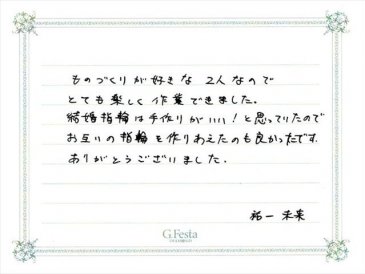 ものづくりが好きな 2人なので
とても楽しく作業できました。
結婚指輪は手作りがいい!と思っていたので
お互いの指輪を作りあえたのも良かったです。
ありがとうございました。
祐一 未来
G.Festa